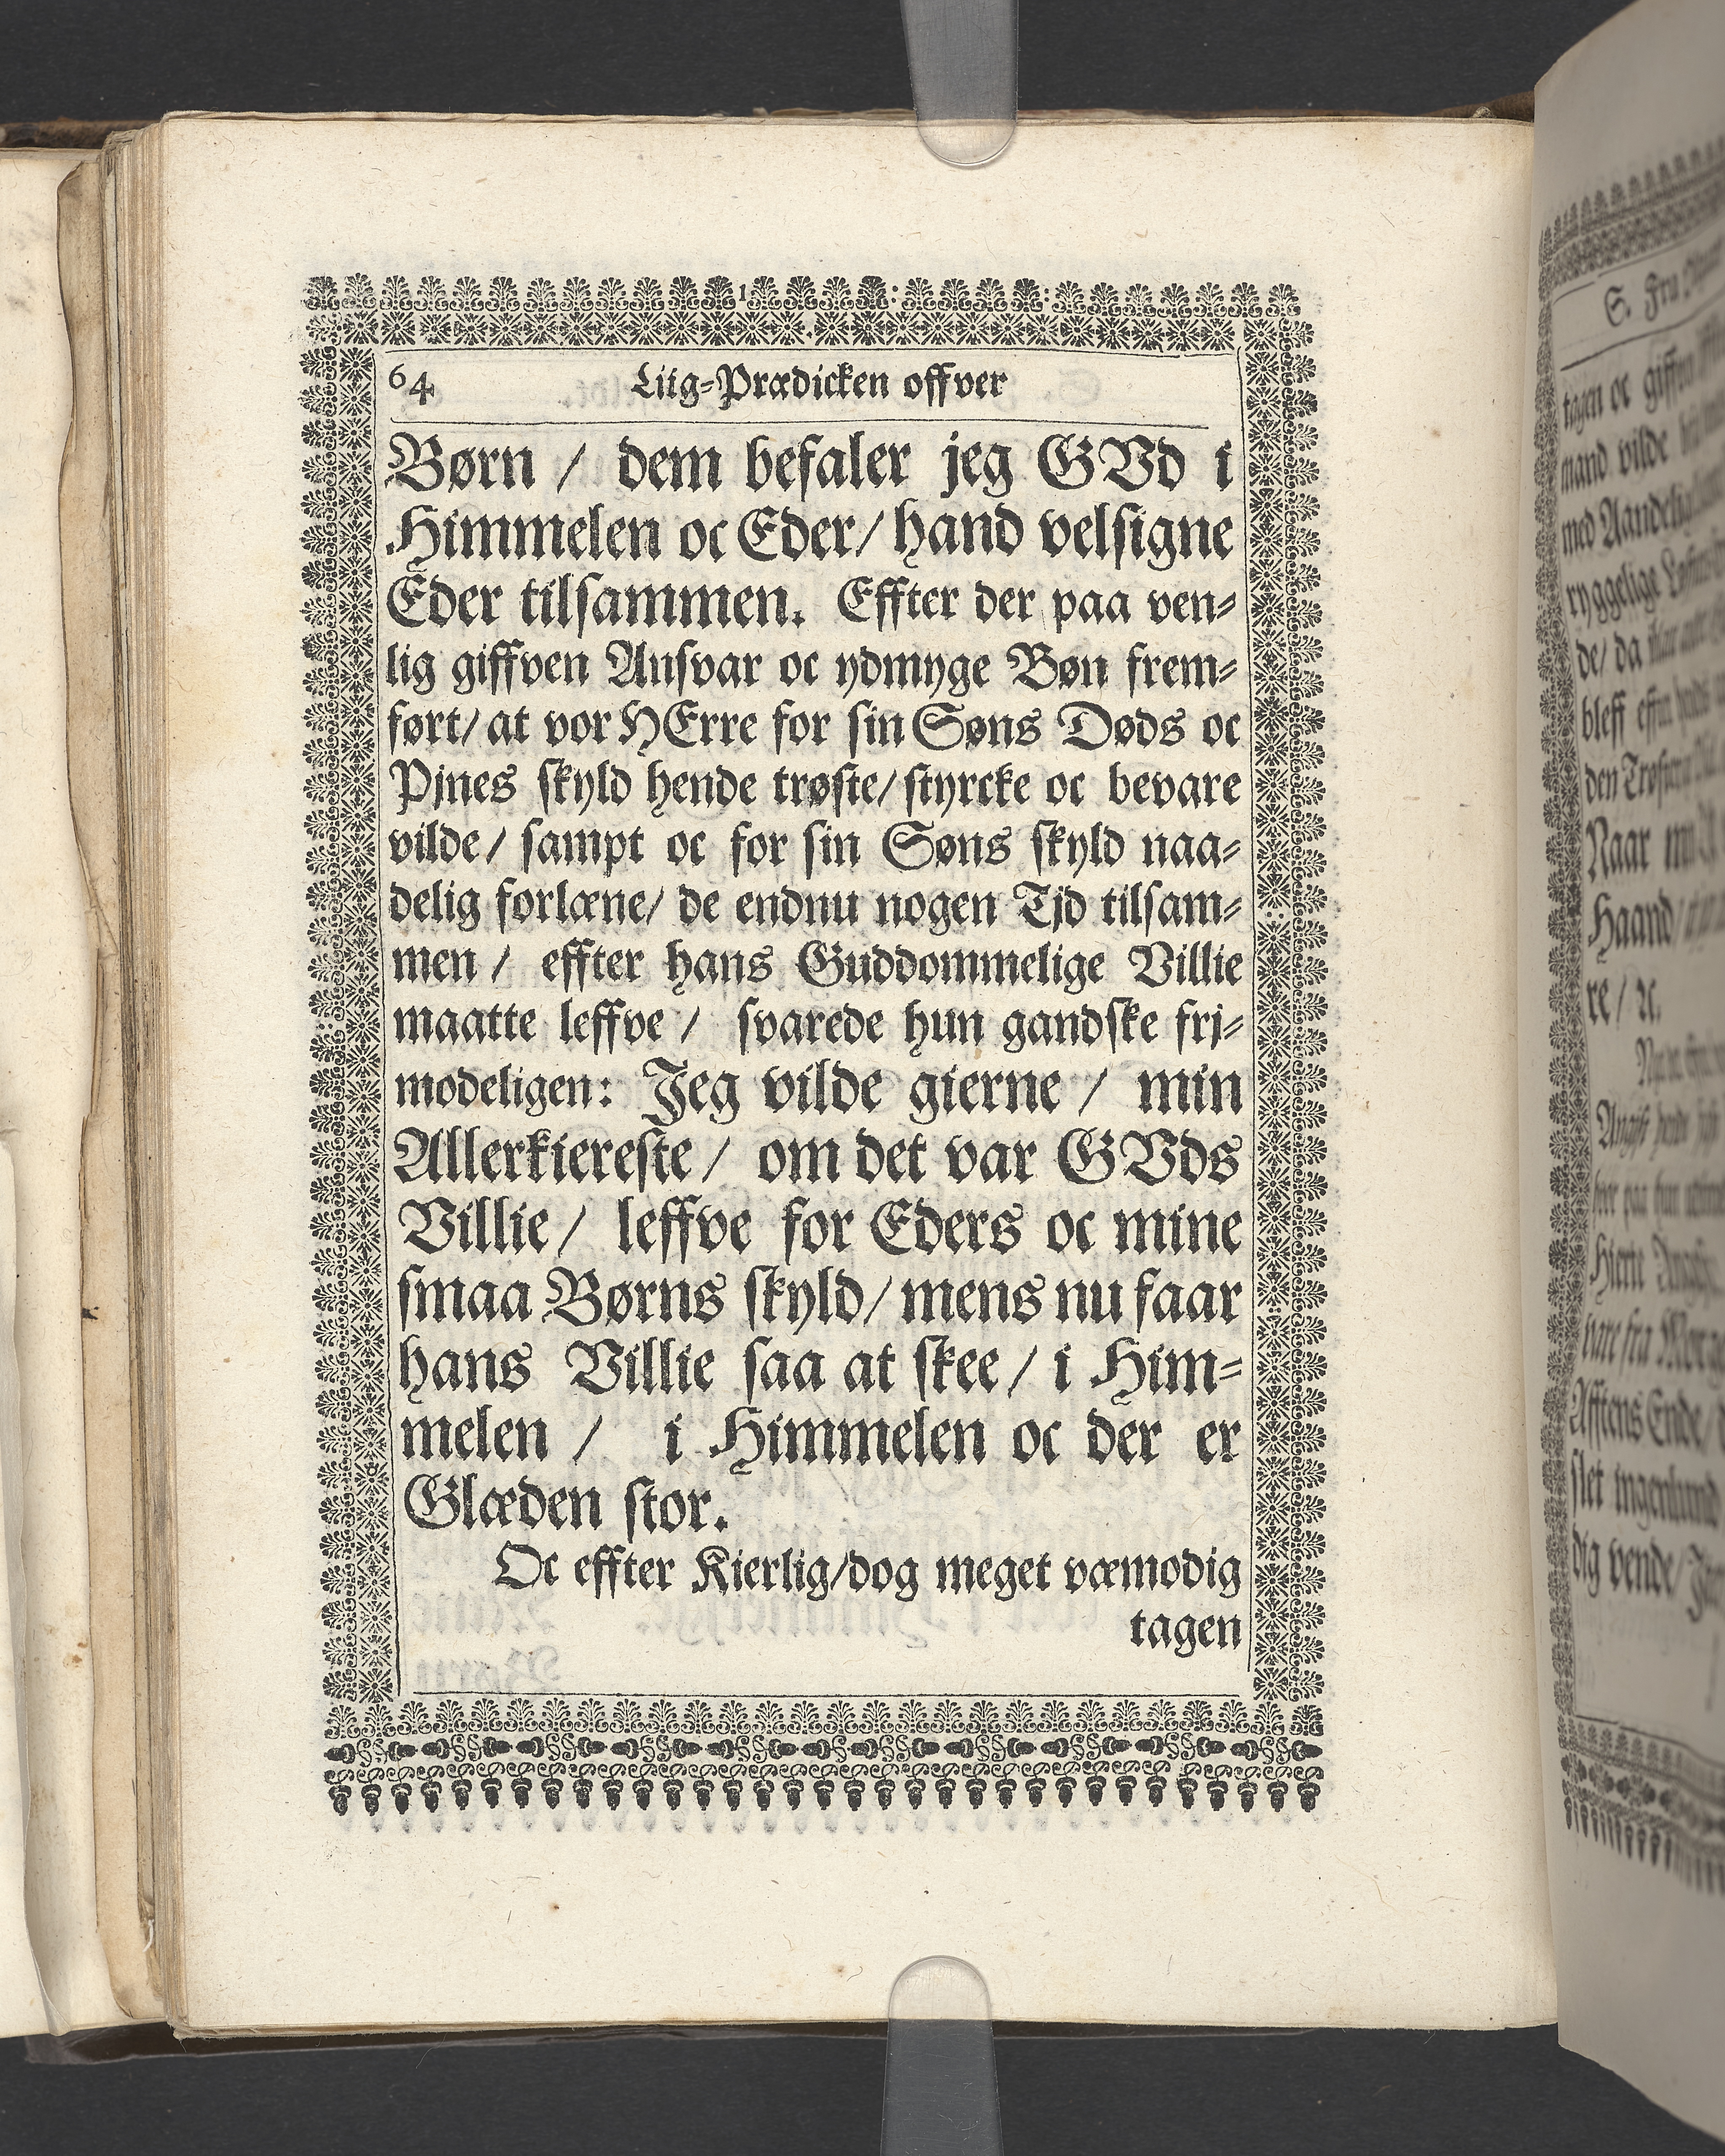 64 Liig-Prædicken offver
Børn / dem befaler jeg GVd i
Himmelen oc Eder/ hand velsigne
Eder tilsammen. Effter der paa ven-
lig giffven Ansvar oc ydmyge Bøn frem-
ført/ at vor HErre for sin Søns Døds oc
Pjnes skyld hende trøste/ styrcke oc bevare
vilde/ sampt oc for sin Søns skyld naa-
delig forlæne/ de endnu nogen Tjd tilsam-
men / effter hans Guddommelige Villie
maatte leffve / svarede hun gandske frj-
modeligen: Jeg vilde gierne / min
Allerkiereste / om det var GVds
Villie / leffve for Eders oc mine
smaa Børns skyld/ mens nu faar
hans Villie saa at skee / i Him-
melen / i Himmelen oc der er
Glæden stor.
Oc effter Kierlig/dog meget væmodig
tagen
S. Fru
tagen oc giffven
mand vilde
med
ryggelige
de/ da
bleff
den
Naar
Haand/
re/ ꝛc.
Hierte
vare fra
Afftens Ende/
slet ingenlund
dig vende/